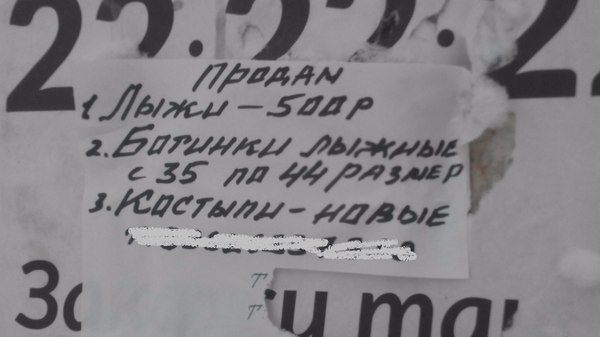 22:22:2
ПРОДАМ
1 ЛЫЖИ – 500Р
2. БОТИНКИ ЛЫЖНЫЕ
С 35 ПО 44 РАЗМЕР
3. КОСТЫЛИ – НОВЫЕ